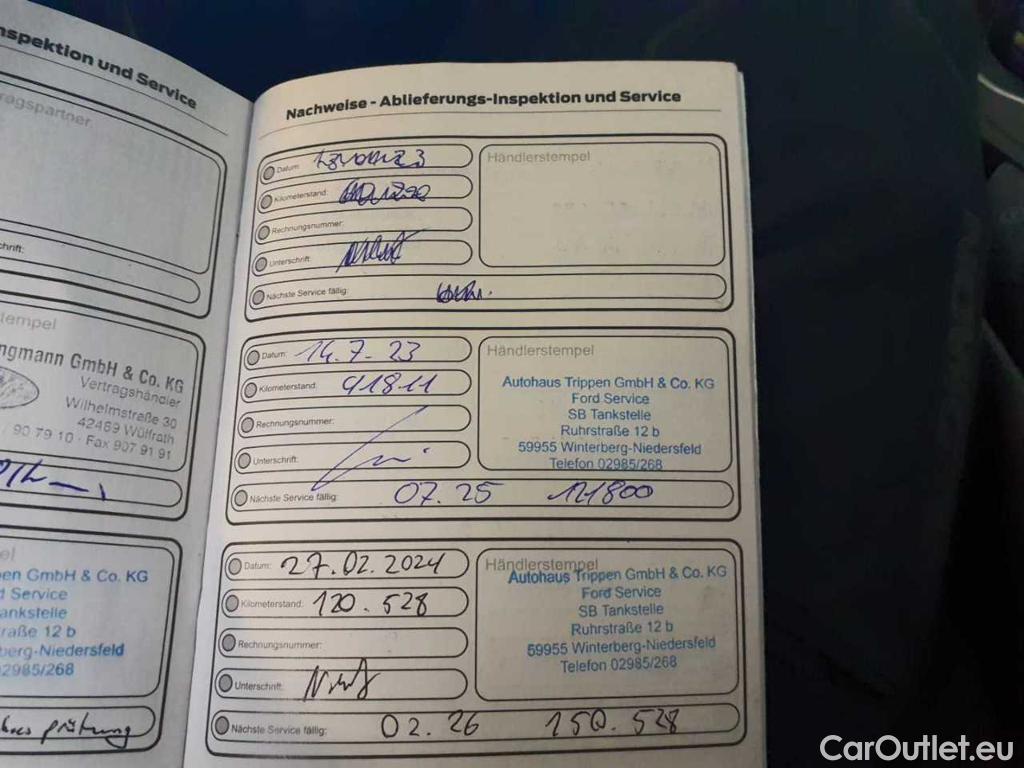 nspektion und Service
ragspartner
chrift:
tempel
ngmann GmbH & Co. KG
Vertragshändler
Wilhelmstraße 30
42489 Wülfrath
90 79 10 - Fax 907 91 91
el
pen GmbH & Co. KG
d Service
ankstelle
raße 12 b
berg-Niedersfeld
2985/268
Nachweise - Ablieferungs-Inspektion und Service
Datum:
Händlerstempel
Kilometerstand:
Rechnungsnummer:
Unterschrift:
Nächste Service fällig:
Datum: 14.7.23
Händlerstempel
Kilometerstand: 91811
Rechnungsnummer:
Unterschrift:
Autohaus Trippen GmbH & Co. KG
Ford Service
SB Tankstelle
Ruhrstraße 12 b
59955 Winterberg-Niedersfeld
Telefon 02985/268
Nächste Service fällig: 07.25 121800
Datum: 27.02.2024
Händlerstempel
Kilometerstand: 120.528
Rechnungsnummer:
Unterschrift:
Autohaus Trippen GmbH & Co. KG
Ford Service
SB Tankstelle
Ruhrstraße 12 b
59955 Winterberg-Niedersfeld
Telefon 02985/268
Nächste Service fällig: 02.26 150.528
CarOutlet.eu